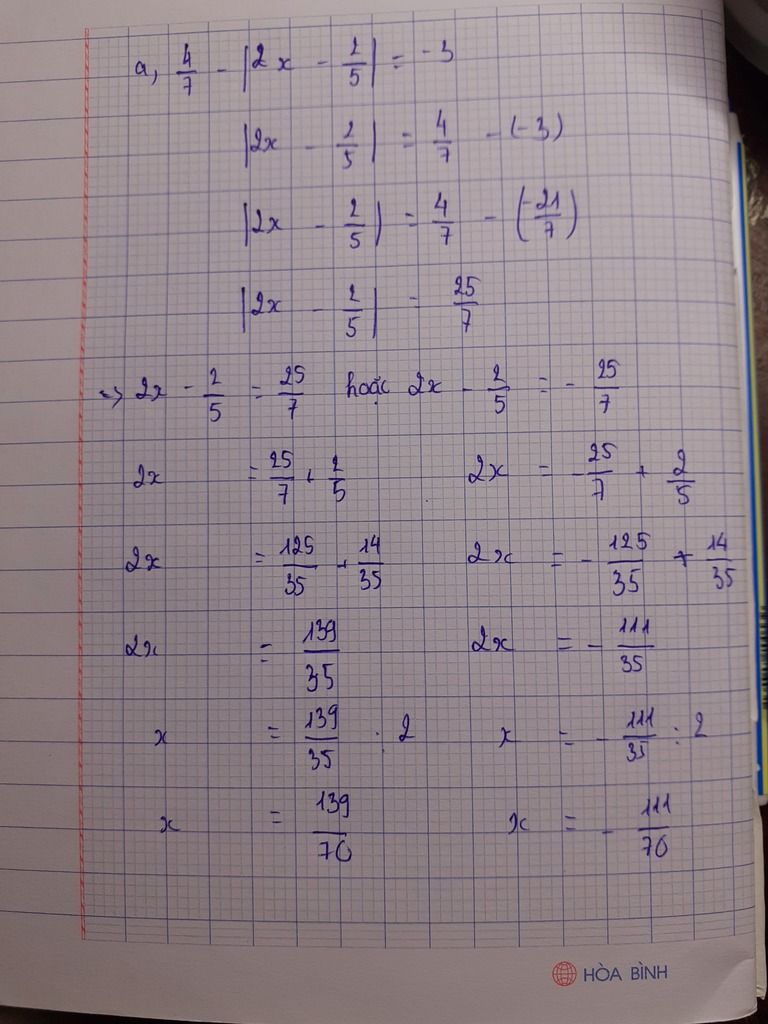 a, 4/7 - |2x - 2/5| = -3
|2x - 2/5| = 4/7 - (-3)
|2x - 2/5| = 4/7 - (-21/7)
|2x - 2/5| = 25/7
=> 2x - 2/5 = 25/7 hoặc 2x - 2/5 = - 25/7
2x = 25/7 + 2/5 2x = - 25/7 + 2/5
2x = 125/35 + 14/35 2x = - 125/35 + 14/35
2x = 139/35 2x = - 111/35
x = 139/35 : 2 x = - 111/35 : 2
x = 139/70 x = - 111/70
HÒA BÌNH